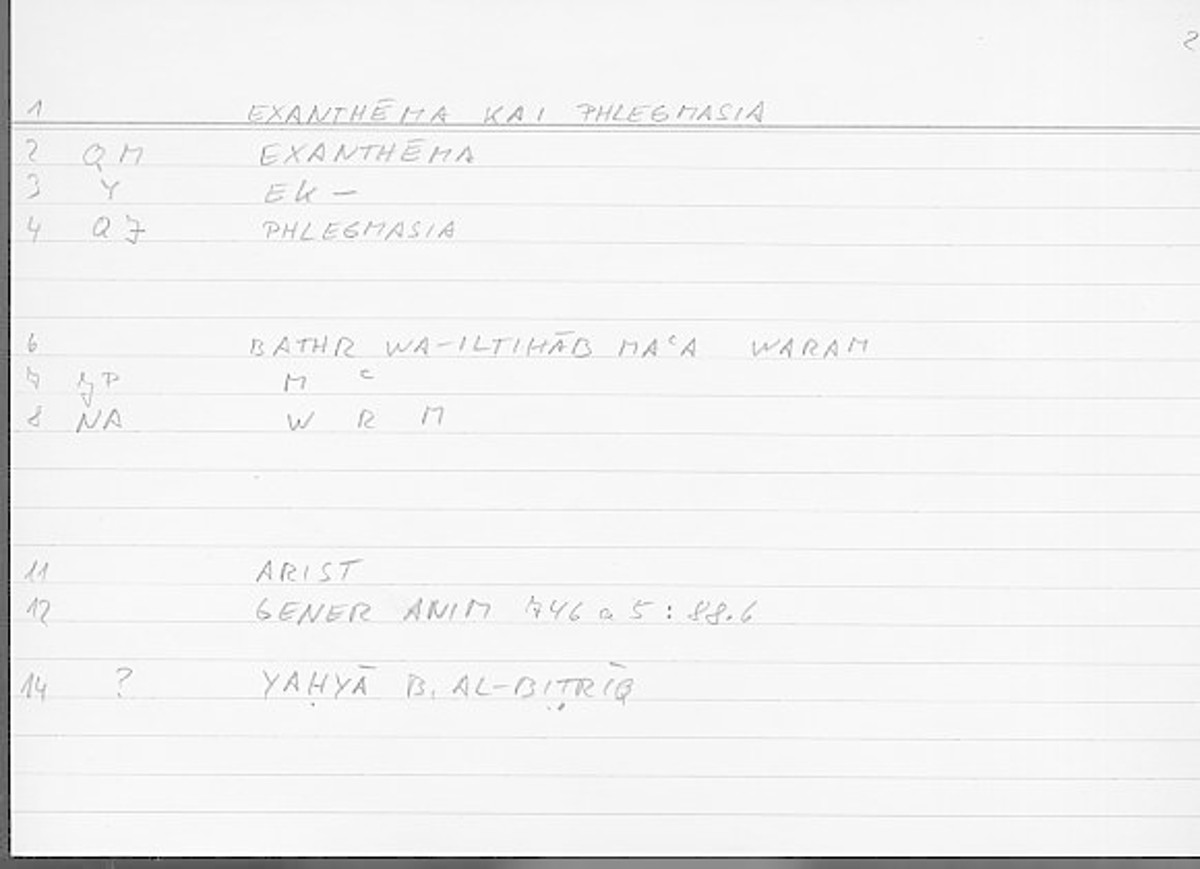 2
1 EXANTHĒMA KAI PHLEGMASIA
2 QM EXANTHĒMA
3 Y EK –
4 QJ PHLEGMASIA
6 BATHR WA-ILTIHĀB MAᶜA WARAM
7 M ᶜ
8 NA W R M
11 ARIST
12 GENER ANIM 746 a 5 : 88.6
14 ? YAḤYĀ B. AL-BIṬRĪQ